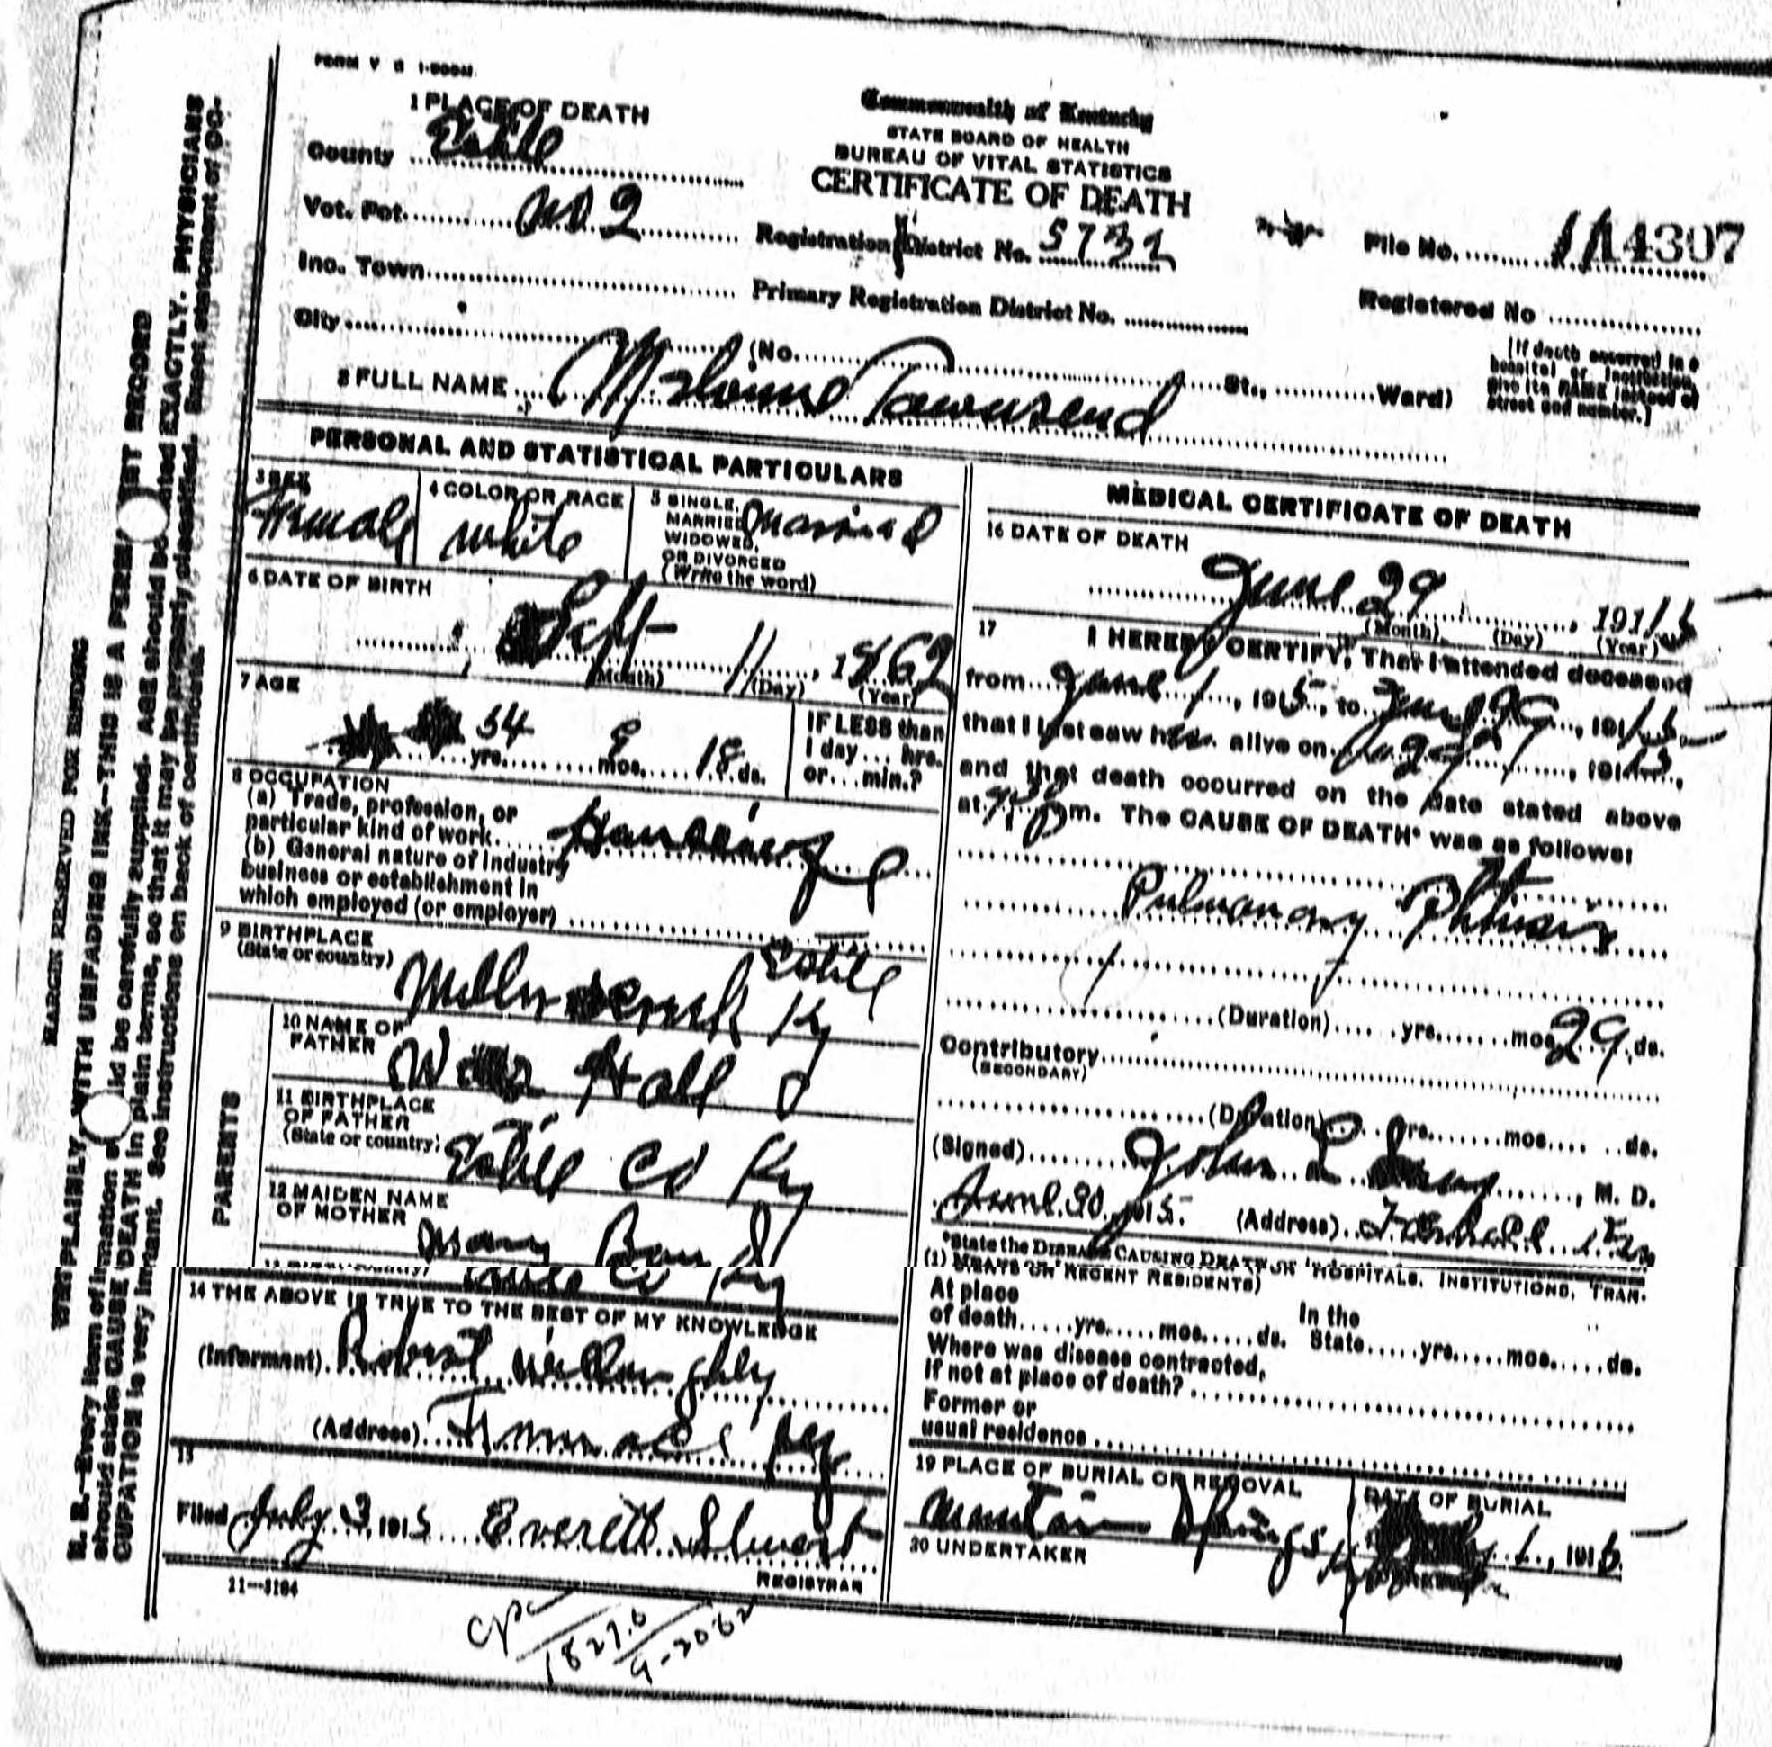 FORM V S 1-500M
1 PLACE OF DEATH
County Estill
Vot. Pct. No 2
Inc. Town
City (No. St., Ward)
Commonwealth of Kentucky
STATE BOARD OF HEALTH
BUREAU OF VITAL STATISTICS
CERTIFICATE OF DEATH
Registration District No. 5732
Primary Registration District No.
File No. 14307
Registered No
(If death occurred in a
hospital or institution,
give its NAME instead of
street and number.)
2 FULL NAME Townsend
PERSONAL AND STATISTICAL PARTICULARS
3 SEX
Female
4 COLOR OR RACE
white
5 SINGLE,
MARRIED
WIDOWED,
OR DIVORCED
(Write the word)
Married
6 DATE OF BIRTH
Sept 11, 1862
(Month) (Day) (Year)
7 AGE
54 yrs. 8 mos. 18 ds.
IF LESS than
1 day ... hrs.
or ... min.?
8 OCCUPATION
(a) Trade, profession, or
particular kind of work
(b) General nature of industry
business or establishment in
which employed (or employer)
9 BIRTHPLACE
(State or country)
Estill
Ky
PARENTS
10 NAME OF
FATHER
Hall
11 BIRTHPLACE
OF FATHER
(State or country)
Estill Co Ky
12 MAIDEN NAME
OF MOTHER
Mary
Co Ky
14 THE ABOVE IS TRUE TO THE BEST OF MY KNOWLEDGE
(Informant) Robert Willoughby
(Address) Ky
15
Filed July 3, 1915 Everett Stewart
REGISTRAR
11-3184
MEDICAL CERTIFICATE OF DEATH
16 DATE OF DEATH
June 29, 1915
(Month) (Day) (Year)
17 I HEREBY CERTIFY, That I attended deceased
from June 1, 1915, to June 29, 1915,
that I last saw her alive on 29, 1915,
and that death occurred on the date stated above
at m. The CAUSE OF DEATH* was as follows:
Pulmonary Phthisis
(Duration) yrs. mos. 29 ds.
Contributory
(SECONDARY)
(Duration) yrs. mos. ds.
(Signed) John, M. D.
June 30, 1915. (Address)
*State the DISEASE CAUSING DEATH
HOSPITALS, INSTITUTIONS, TRAN-
(1) MEANS OR RECENT RESIDENTS)
At place
of death yrs. mos. ds.
In the
State yrs. mos. ds.
Where was disease contracted,
If not at place of death?
Former or
usual residence
19 PLACE OF BURIAL OR REMOVAL
Springs
DATE OF BURIAL
1, 1915
20 UNDERTAKER
MARGIN RESERVED FOR BINDING
PLAINLY, WITH UNFADING INK—THIS IS A RECORD
N. B.—Every item of information should be carefully supplied. AGE should be stated EXACTLY. PHYSICIANS
should state CAUSE OF DEATH in plain terms, so that it may be properly classified. Exact statement of OC-
CUPATION is very important. See instructions on back of certificate.